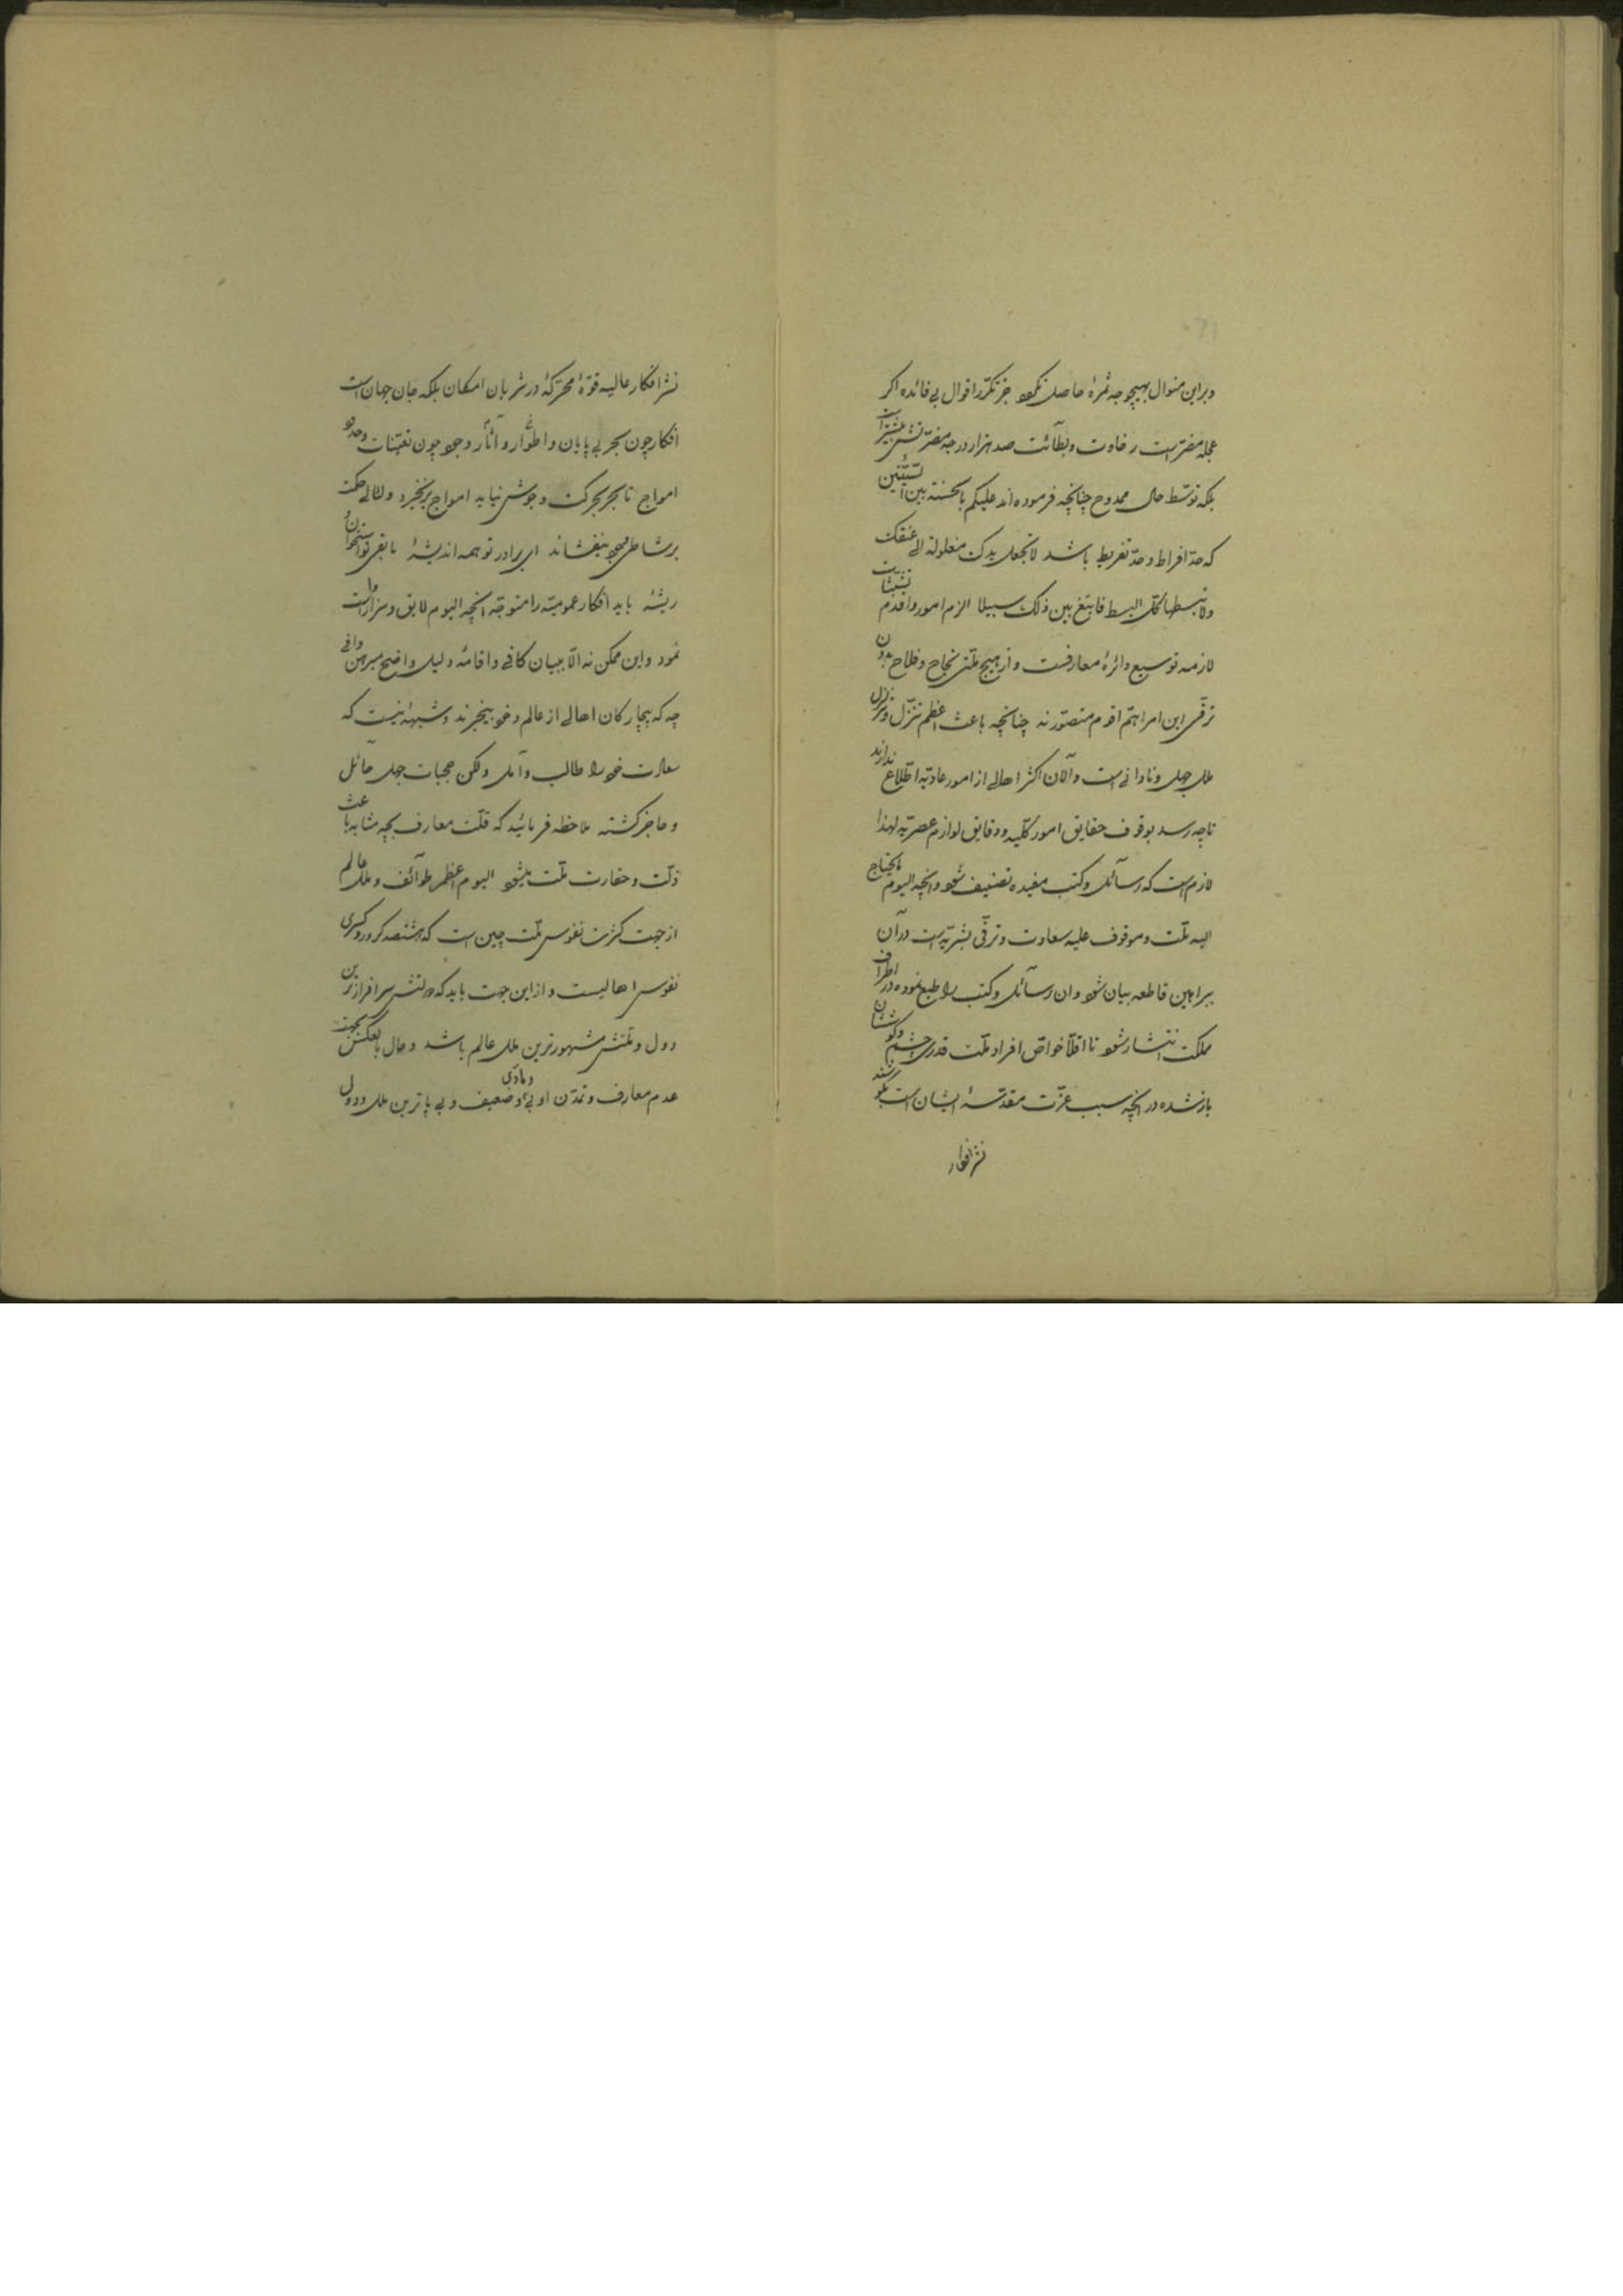 وبراین منوال بهیچوجه ثمرهٔ حاصل نکردد جز تکرّر اقوال بی فائده اکر
عجله مضرّ است رخاوت وبطائت صد هزار درجه مضرّتش بیشتراست
بلکه توسّط حال ممدوح چنانچه فرموده‌اند علیکم بالحسنة بین السّیّئتین
که حدّ افراط و حدّ تفریط باشد لا تجعل یدک مغلولة الی عنقک
ولا تبسطها کلّ البسط فابتغ بین ذلک سبیلا الزم امور واقدم تشبّثات
لازمه توسیع دائرهٔ معارفست و از هیچ ملّتی نجاح و فلاح بدون
ترقّی این امر اهمّ اقوم متصوّر نه چنانچه باعث اعظم تنزّل و تزلزل
ملل جهل و نادانی است والآن اکثر اهالی از امور عادیّه اطّلاع ندارند
تا چه رسد بوقوف حقایق امور کلّیه و دقایق لوازم عصریّه لهذا
لازم است که رسائل و کتب مفیده تصنیف شود و آنچه الیوم ما یحتاج
الیه ملّت و موقوف علیه سعادت و ترقّی بشریّه است در آن
ببراهین قاطعه بیان شود و ان رسائل و کتب را طبع نموده در اطراف
مملکت انتشار شود تا اقلّاً خواصّ افراد ملّت قدری چشم و کوششان
باز شده در انچه سبب عزّت مقدّسهٔ ایشان است بکوشند
نشر افکار
نشر افکار عالیه قوّهٔ محرّکه در شریان امکان بلکه جان جهان است
افکار چون بحر بی پایان و اطوار و آثار وجود چون تعیّنات و حدود
امواج تا بحر بحرکت و جوش نیاید امواج برنخیزد و لئالی حکمت
بر شاطی وجود نیفشاند ای برادر تو همه اندیشهٔ مابقی تو استخوان و
ریشهٔ باید افکار عمومیّه را متوجّه انچه الیوم لایق و سزاوار است
نمود و این ممکن نه الّا ببیان کافی و اقامهٔ دلیل واضح مبرهن وافی
چه که بیچارکان اهالی از عالم و خود بیخبرند و شبههٔ نیست که
سعادت خود را طالب و آمل ولکن حجبات جهل حائل
و حاجز کشته ملاحظه فرمائید که قلّت معارف بچه مثابه باعث
ذلّت و حقارت ملّت میشود الیوم اعظم طوائف و ملل عالم
از جهت کثرت نفوس ملّت چین است که هشتصد کرور و کسری
نفوس اهالیست و از این جهت باید که دولتش سرافرازترین
دول و ملّتش مشهورترین ملل عالم باشد و حال بالعکس بجهت
عدم معارف و تمدّن ادبی و مادّی ضعیف و بی پاترین ملل و دول